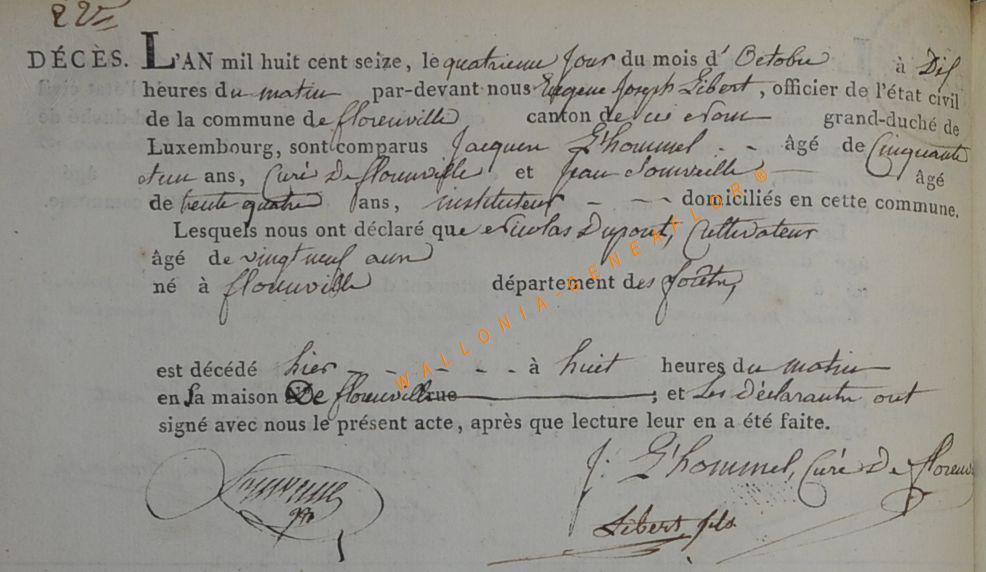 22
DÉCÈS. L'AN mil huit cent seize, le quatrieme jour du mois d' Octobre à Dix
heures du matin par-devant nous Eugene Joseph Libert, officier de l'état civil
de la commune de florenville canton de grand-duché de
Luxembourg, sont comparus Jacques L'hommel - - âgé de Cinquante
et un ans, Curé De florenville et jean âgé
de trente quatre ans, instituteur - - - domiciliés en cette commune.
Lesquels nous ont déclaré que Nicolas Dupont, Cultivateur
âgé de vingt neuf ans
né à florenville département des forêts,
est décédé hier - - - - à huit heures du matin
en sa maison De florenville rue ; et Les Déclarants ont
signé avec nous le présent acte, après que lecture leur en a été faite.
J: L'hommel, Curé De florenv
Libert fils
WALLONIA-GENEAFLOR®